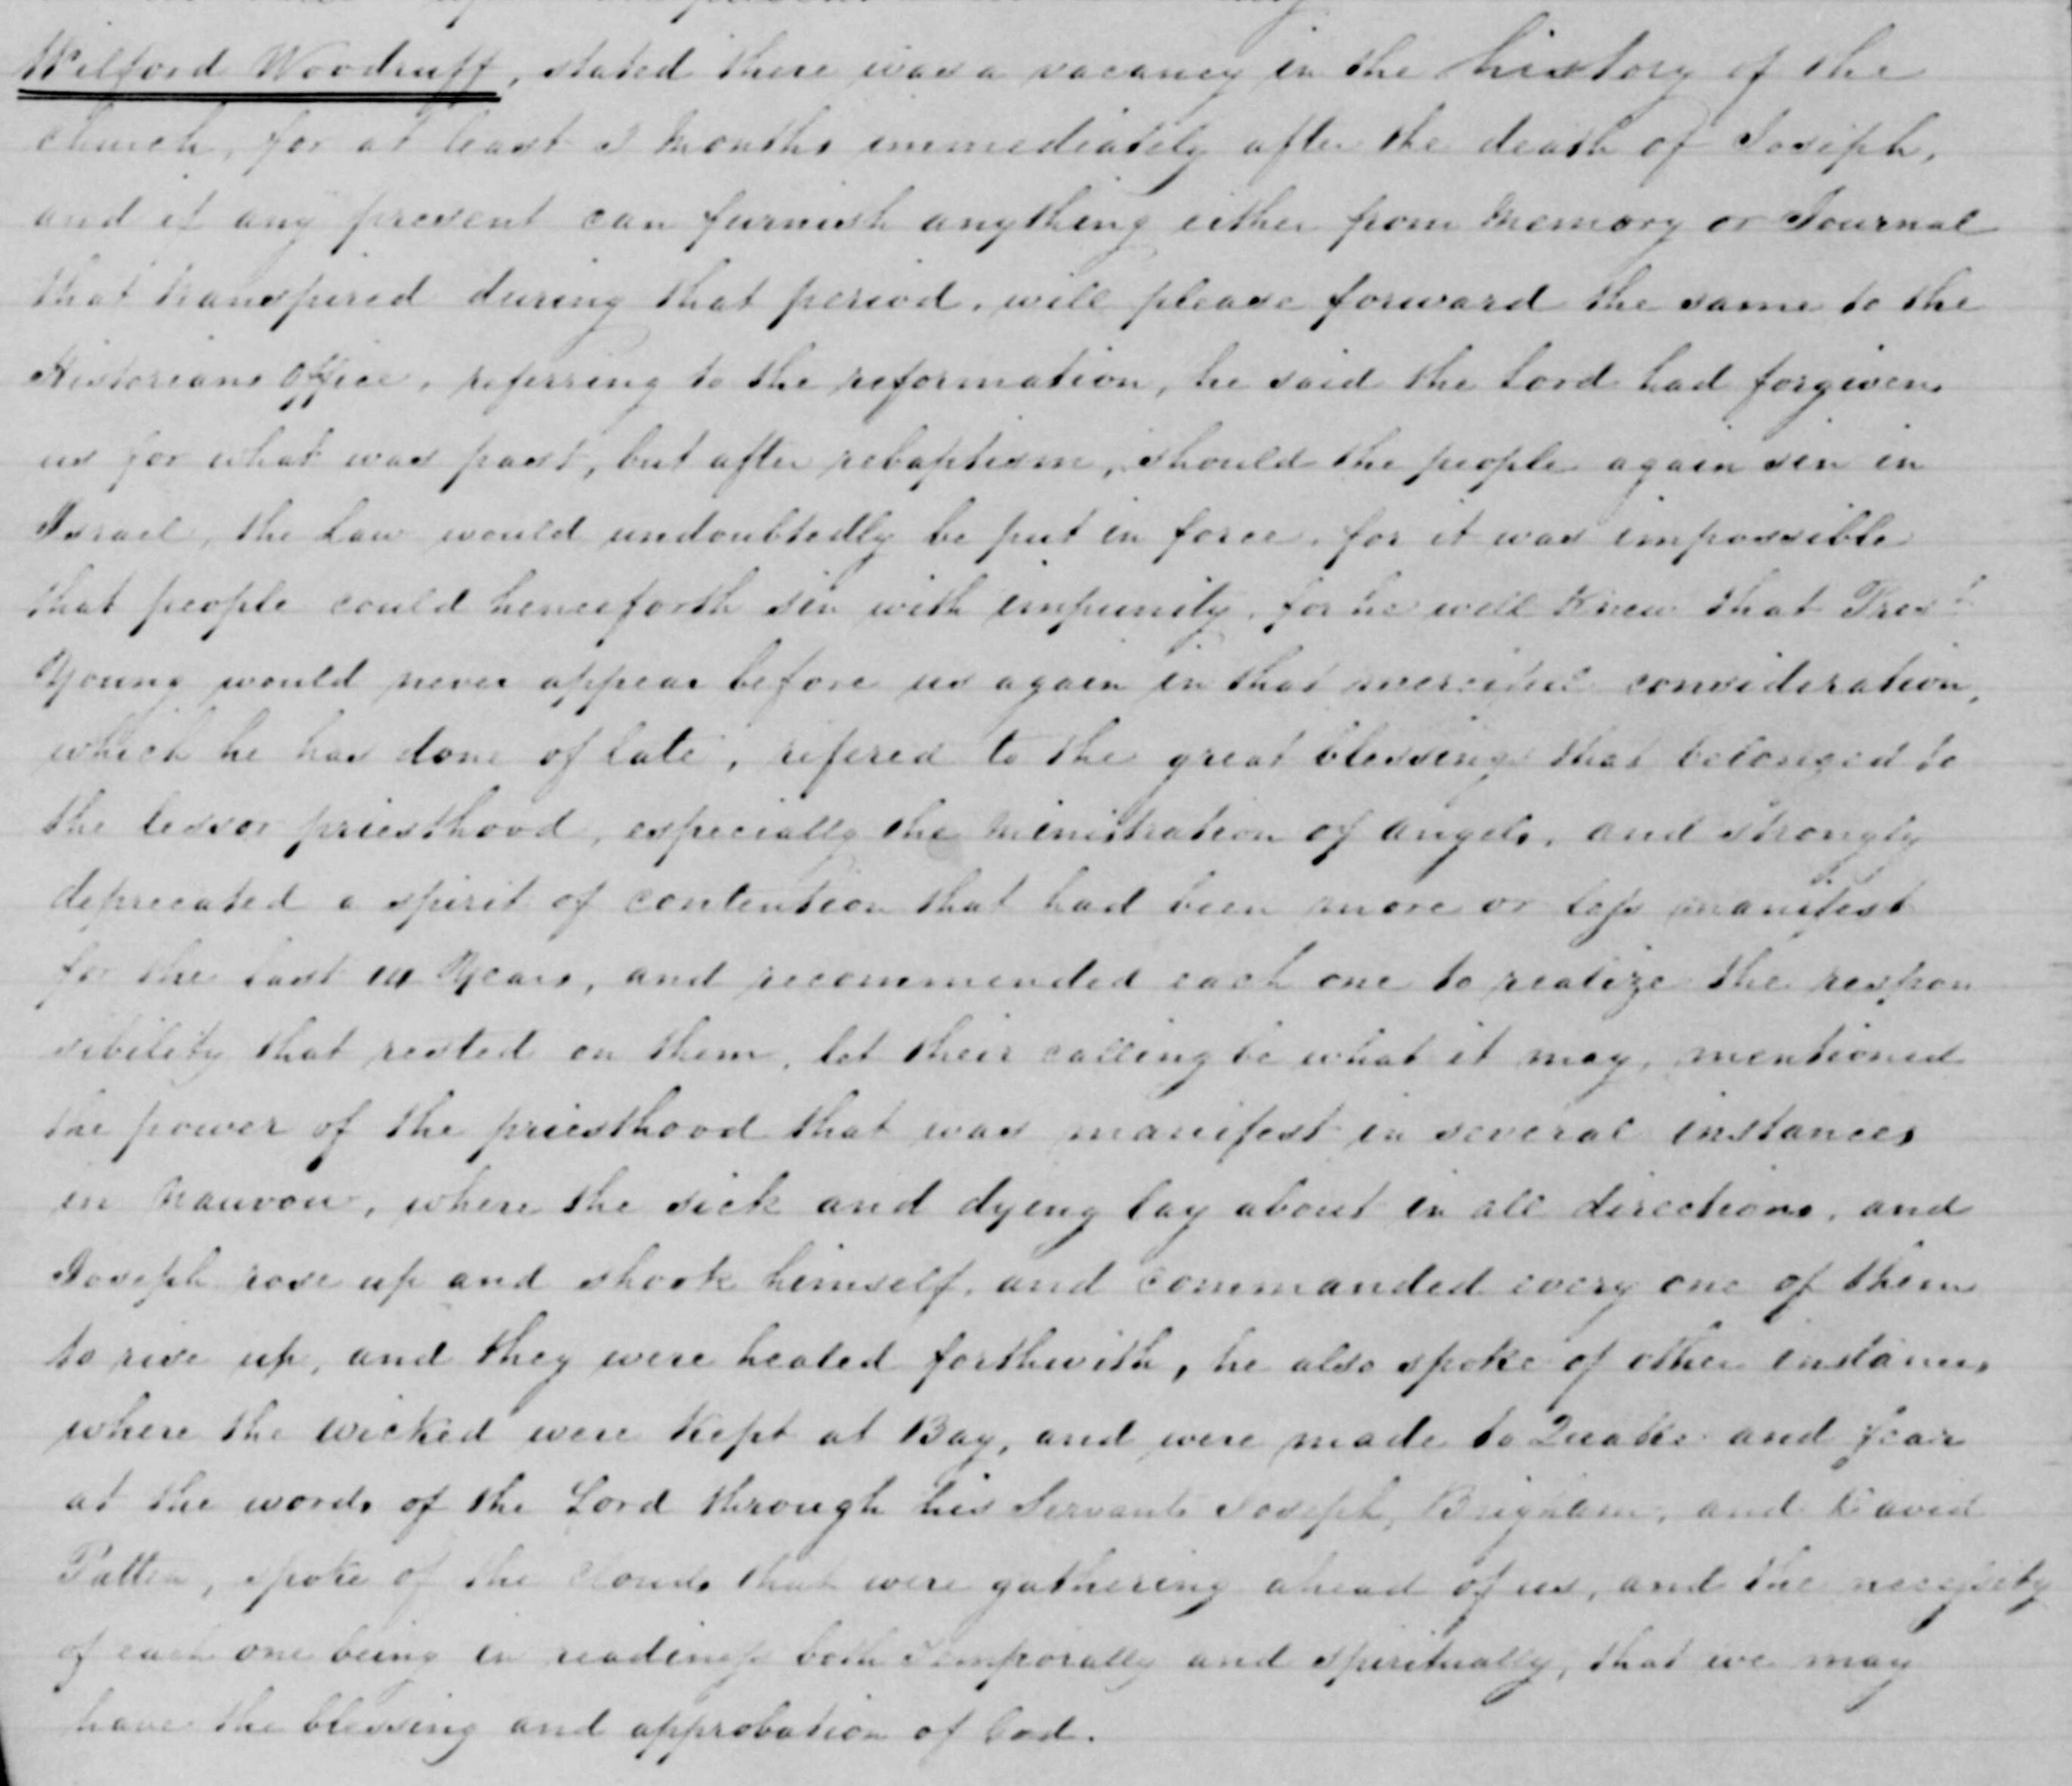 Wilford Woodruff, stated there was a vacancy in the history of the
church, for at least 2 Months immediately after the death of Joseph,
and if any present can furnish anything either from Memory or Journal
that transpired during that period, will please forward the same to the
Historians Office, referring to the reformation, he said the Lord had forgiven
us for what was past, but after rebaptism, should the people again sin in
Israel, the Law would undoubtedly be put in force, for it was impossible
that people could henceforth sin with impunity, for he well Knew that Prest
Young would never appear before us again in that merciful consideration,
which he has done of late, refered to the great blessings that belonged to
the lessor priesthood, especially the Ministration of Angels, and strongly
deprecated a spirit of contention that had been more or less manifest
for the last Years, and recommended each one to realize the respon
sibility that rested on them, let their calling be what it may, mentioned
the power of the priesthood that was manifest in several instances
in Nauvoo, where the sick and dying lay about in all directions, and
Joseph rose up and shook himself, and commanded every one of them
to rise up, and they were healed forthwith, he also spoke of other instances
where the wicked were Kept at Bay, and were made to Quake and fear
at the words of the Lord through his Servants Joseph, Brigham, and David
Patten, spoke of the Clouds that were gathering ahead of us, and the necessity
of each one being in readiness both Temporally and Spiritually, that we may
have the blessing and approbation of God.